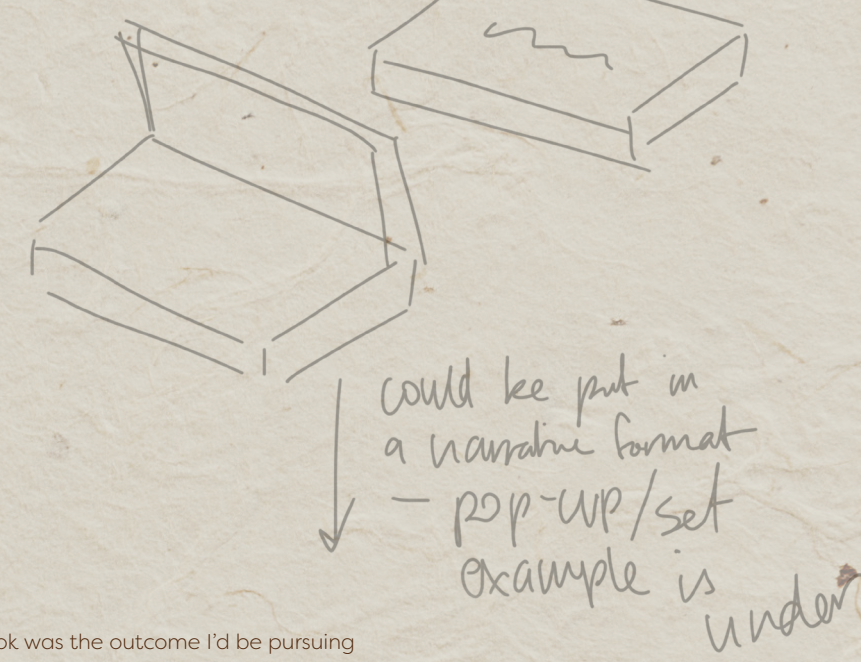 could be put in
a narrative format
- pop-up/set
example is
under
ok was the outcome I'd be pursuing